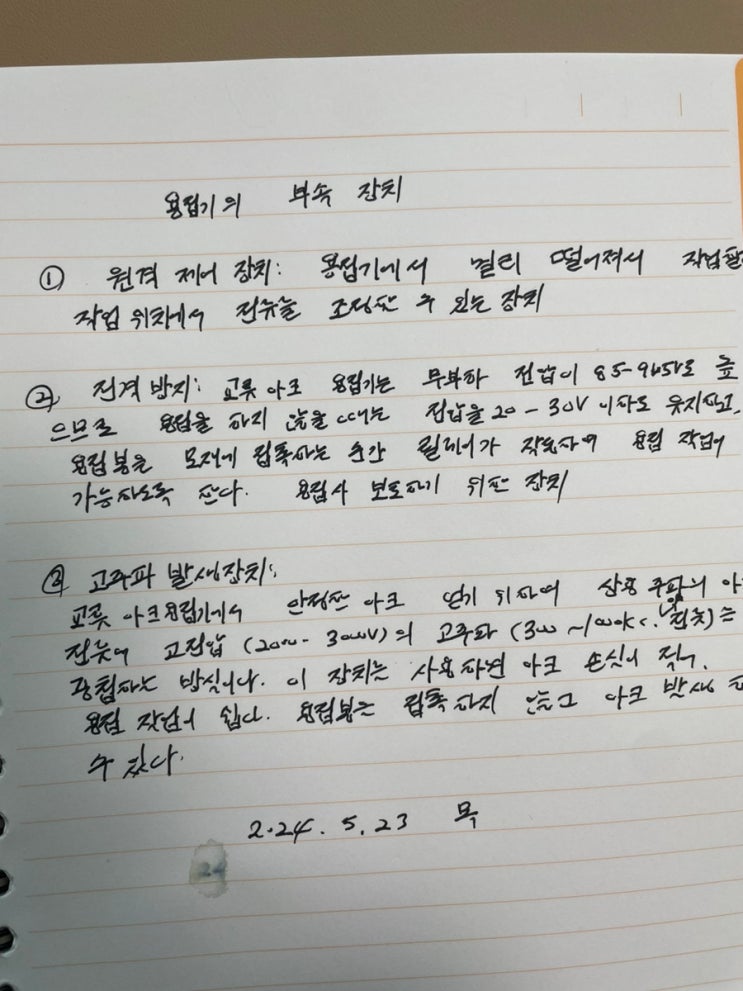 용접기의 부속 장치
① 원격 제어 장치: 용접기에서 멀리 떨어져서 작업할
작업 위치에서 전류를 조정할 수 있는 장치
② 전격 방지: 교류 아크 용접기는 무부하 전압이 85-95V로 높
으므로 용접을 하지 않을 때는 전압을 20-30V 이하로 유지하고,
용접봉을 모재에 접촉하는 순간 릴레이가 작동하여 용접 작업이
가능하도록 한다. 용접사 보호하기 위한 장치
③ 고주파 발생장치:
교류 아크용접기에서 안정한 아크 얻기 위하여 상용 주파의 아
전류에 고전압 (2000-3000V)의 고주파 (300~1000Kc. 전류)는
중첩하는 방식이다. 이 장치는 사용하면 아크 손실이 적어,
용접 작업이 쉽다. 용접봉는 접촉하지 않고 아크 발생
수 있다.
2.24. 5. 23 목